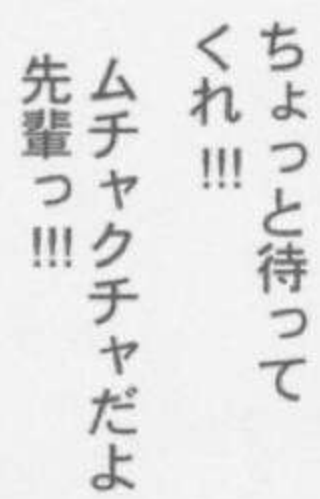 ちょっと待って
くれ!!!
ムチャクチャだよ
先輩っ!!!